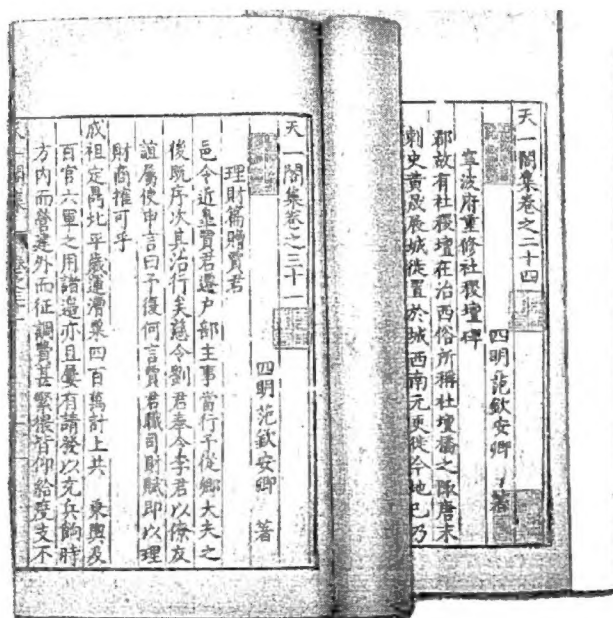 天一閣集卷之二十四
四明范欽安卿 著
寧波府重修社稷壇碑
郡故有社稷壇在治西俗所稱社壇橋之陬唐末
刺史黃晟展城徙置於城西南元更徙今地已乃
天一閣集卷之三十一
四明范欽安卿 著
理財篇贈賈君
邑令近皐賈君遷户部主事當行予從鄉大夫之
後既序次其治行矣慈令劉君奉令李君以僚友
誼屬使申言曰予復何言賈君職司財賦即以理
財商搉可乎
成祖定鼎北平歲運漕粟四百萬計上共 乘輿及
百官六軍之用諸邊亦且屢有請發以充兵餉時
方内而營建外而征調費甚繁猥皆仰給度支不